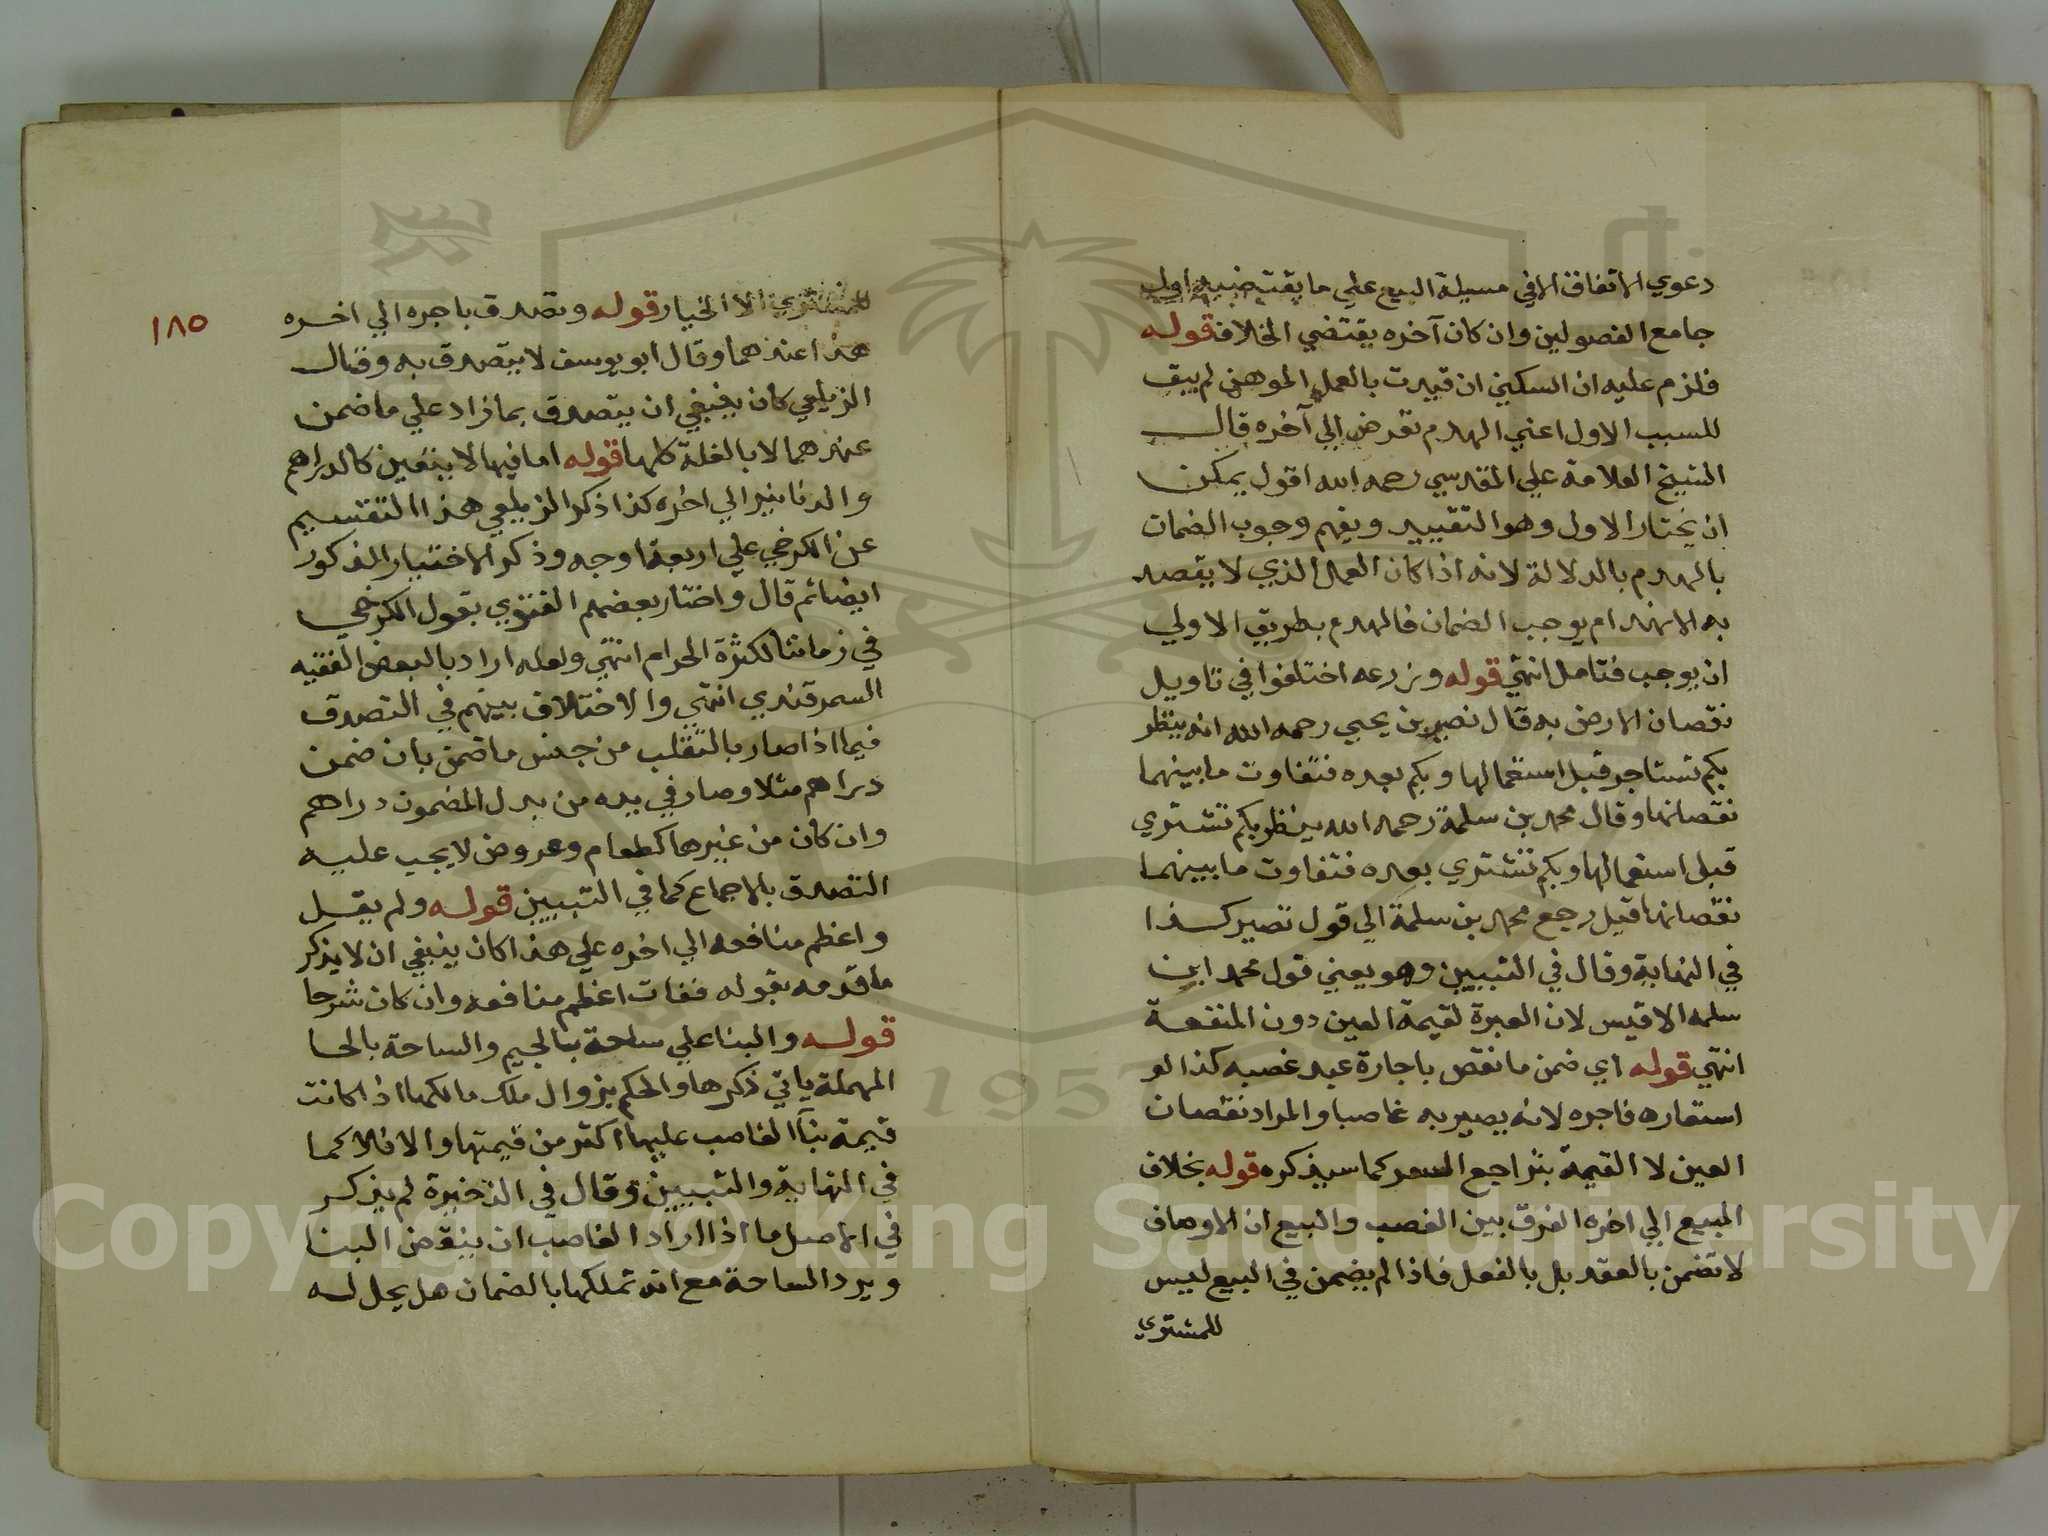 دعوي الاتفاق الافي مسيلة البيع علي ما يقتضيه اول
جامع الفصولين وان كان آخره يقتضي الخلاف قوله
فلزم عليه ان السكني ان قيدت بالعمل الموهن لم يبق
للسبب الاول اعني الهدم تعرض الي آخره قال
الشيخ العلامة علي المقدسي رحمه الله اقول يمكن
ان يختار الاول وهو التقييد ويفهم وجوب الضمان
بالهدم بالدلالة لانه اذا كان العمل الذي لا يقصد
به الانهدام يوجب الضمان فالهدم بطريق الاولي
ان يوجب فتامل انتهي قوله وزرعه اختلفوا في تاويل
نقصان الارض به قال نصير بن يحيي رحمه الله انه ينظر
بكم تستاجر قبل استعمالها وبكم بعده فتفاوت ما بينهما
نقصانها وقال محمد بن سلمة رحمه الله ينظر بكم تشتري
قبل استعمالها وبكم تشتري بعده فتفاوت ما بينهما
نقصانها قيل رجع محمد بن سلمة الي قول نصير كذا
في النهاية وقال في التبيين وهو يعني قول محمد ابن
سلمه الاقيس لان العبرة لقيمة العين دون المنفعة
انتهي قوله اي ضمن ما نقص باجارة عبد غصبه كذا لو
استعاره فاجره لانه يصير به غاصبا والمراد نقصان
العين لا القيمة بتراجع السعر كما سيذكره قوله بخلاف
المبيع الي اخره الفرق بين الغصب والبيع ان الاوصاف
لا تضمن بالعقد بل بالفعل فاذا لم يضمن في البيع ليس
للمشتري
١٨٥
للمشتري الا الخيار قوله وتصدق باجره الي اخره
هذا عندهما وقال ابو يوسف لا يتصدق به وقال
الزيلعي كان ينبغي ان يتصدق بما زاد علي ما ضمن
عندهما لا بالغلة كلها قوله اما فيما لا يتعين كالدراهم
والدنانير الي اخره كذا ذكر الزيلعي هذا التقسيم
عن الكرخي علي اربعة اوجه وذكر الاختيار المذكور
ايضا ثم قال واختار بعضهم الفتوي بقول الكرخي
في زماننا لكثرة الحرام انتهي ولعله اراد بالبعض الفقيه
السمرقندي انتهي والاختلاف بينهم في التصدق
فيما اذا صار بالتقلب من جنس ما ضمن بان ضمن
دراهم مثلا وصار في يده من بدل المضمون دراهم
وان كان من غيرها كطعام وعروض لا يجب عليه
التصدق بالاجماع كما في التبيين قوله ولم يقل
واعظم منافعه الي اخره علي هذا كان ينبغي ان لا يذكر
ما قدمه بقوله ففات اعظم منافعه وان كان شرحا
قوله والبنا علي ساجة بالجيم والساحة بالحا
المهملة ياتي ذكرها والحكم بزوال ملك مالكها اذا كانت
قيمة بنآ الغاصب عليها اكثر من قيمتها والا فلا كما
في النهاية والتبيين وقال في الذخيرة لم يذكر
في الاصل ما اذا اراد الغاصب ان ينقض البنا
ويرد الساحة مع انه تملكها بالضمان هل يحل له
Copyright © King Saud University
1957